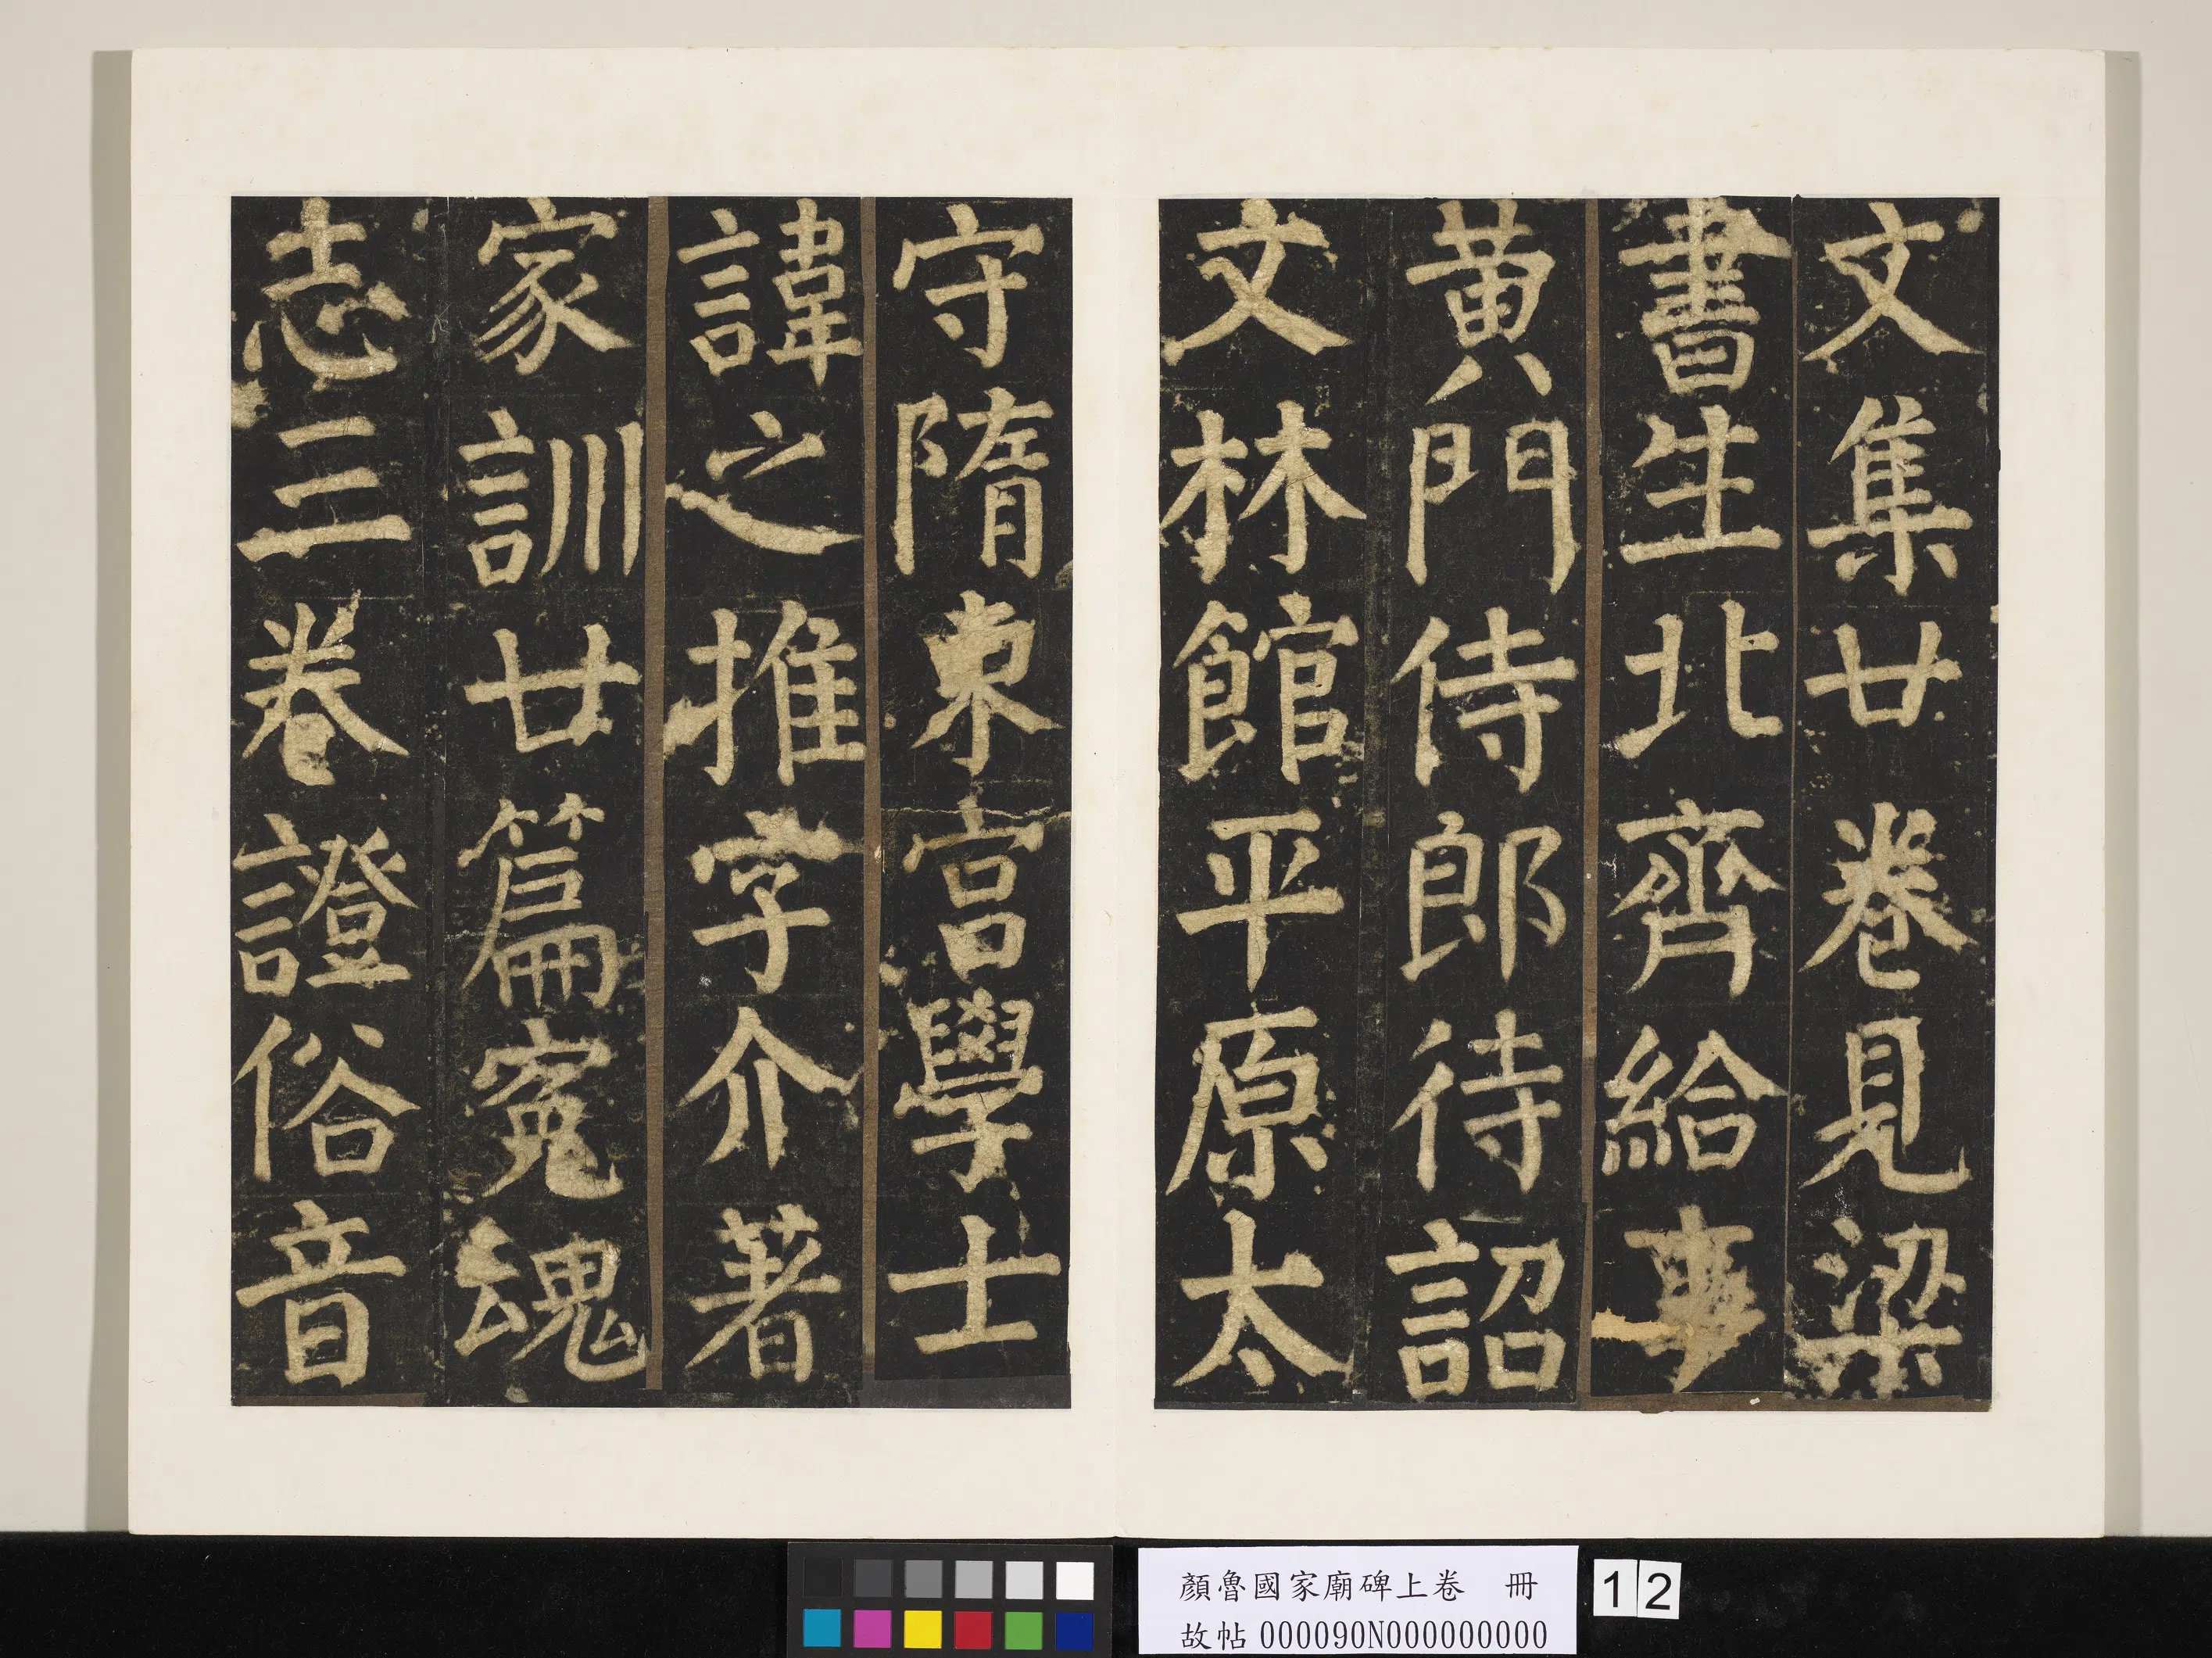 文集廿卷見梁
書生北齊給事
黄門侍郎待詔
文林館平原太
守隋東宮學士
諱之推字介著
家訓廿篇寃魂
志三卷證俗音
顏魯國家廟碑上卷 冊
故帖 000090N000000000
12